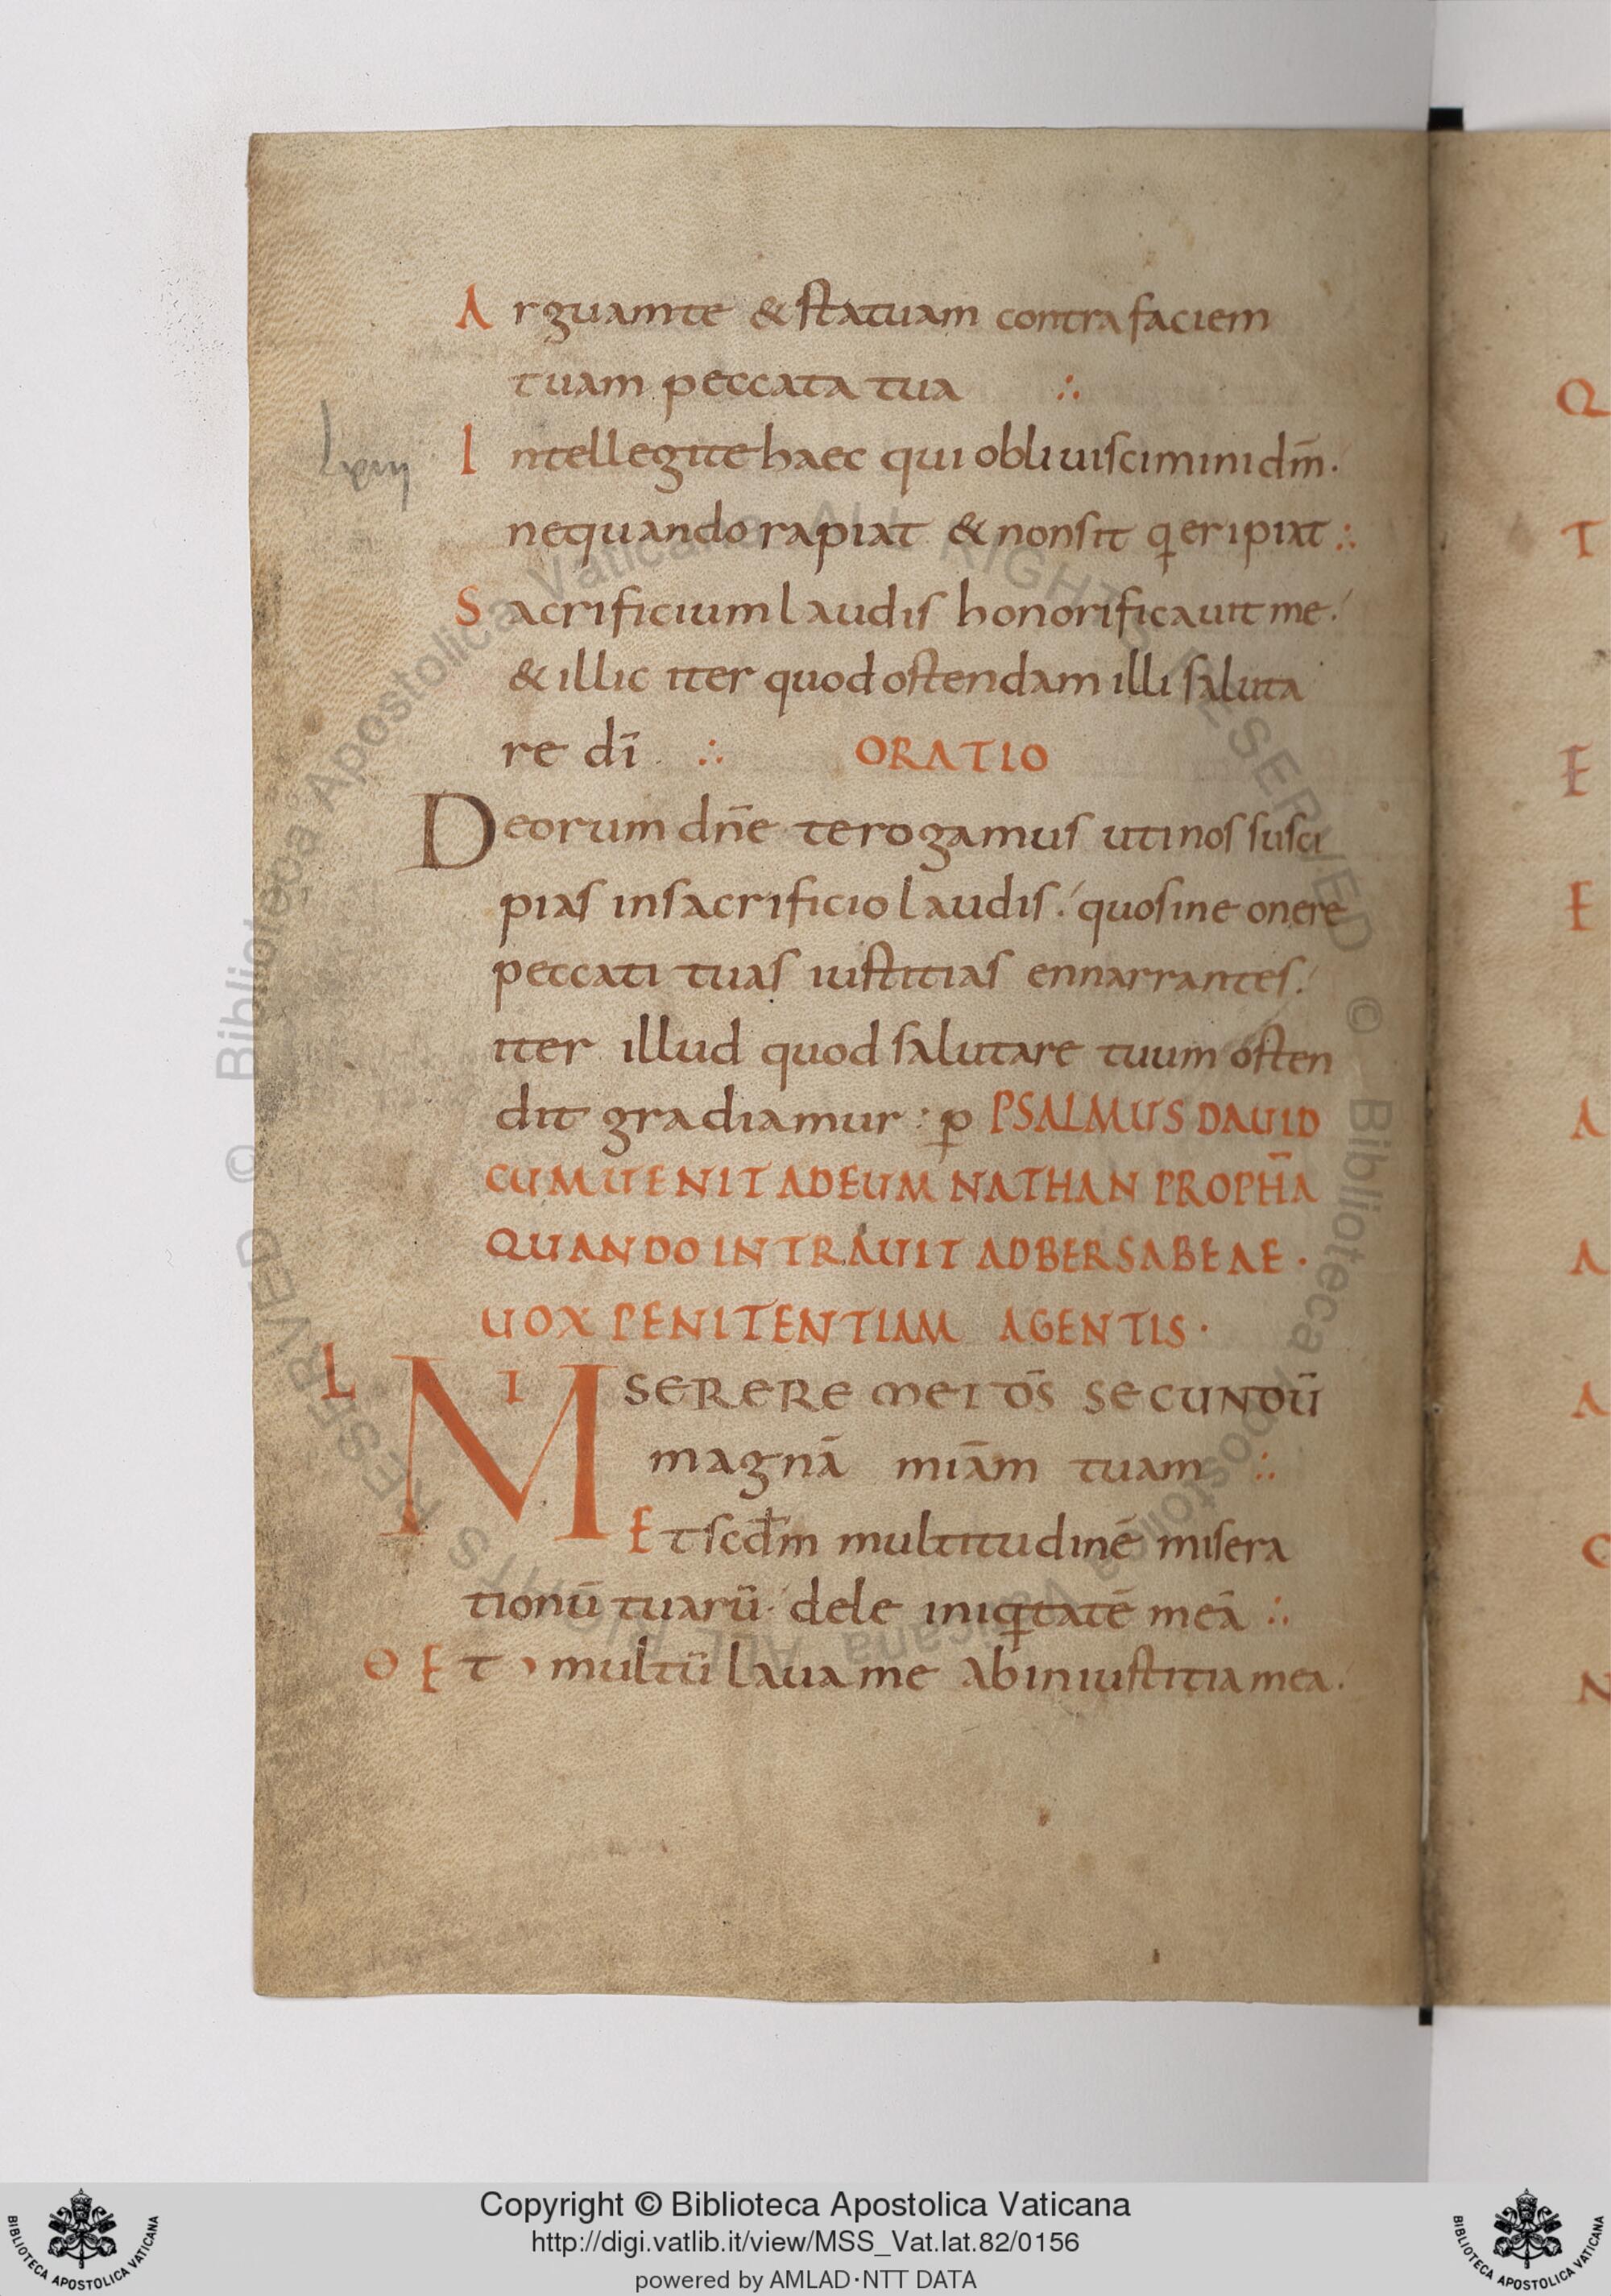 Arguam te & statuam contra faciem
tuam peccata tua ∴
Intellegite haec qui obliuiscimini dm̄.
nequando rapiat & non sit q eripiat ∴
Sacrificium laudis honorificauit me.
& illic iter quod ostendam illi saluta
re dī ∴ ORATIO
Deorum dn̄e te rogamus uti nos susci
pias in sacrificio laudis. quo sine onere
peccati tuas iustitias ennarrantes.
iter illud quod salutare tuum osten
dit gradiamur : ꝑ PSALMUS DAUID
CUM UENIT AD EUM NATHAN PROPH̄A
QUANDO INTRAUIT AD BERSABEAE ·
UOX PENITENTIAM AGENTIS ·
L MISERERE MEI DS̄ SECUNDŪ
magnā miām tuam ∴
Et scd̄m multitudinē misera
tionū tuarū. dele iniqtatē meā ∴
Θ Et multū laua me ab iniustitia mea.
Q
T
E
E
A
A
A
C
N
© Biblioteca Apostolica Vaticana ALL RIGHTS RESERVED © Biblioteca Apostolica Vaticana ALL RIGHTS RESERVED
Copyright © Biblioteca Apostolica Vaticana
http://digi.vatlib.it/view/MSS_Vat.lat.82/0156
powered by AMLAD·NTT DATA
BIBLIOTECA APOSTOLICA VATICANA
BIBLIOTECA APOSTOLICA VATICANA